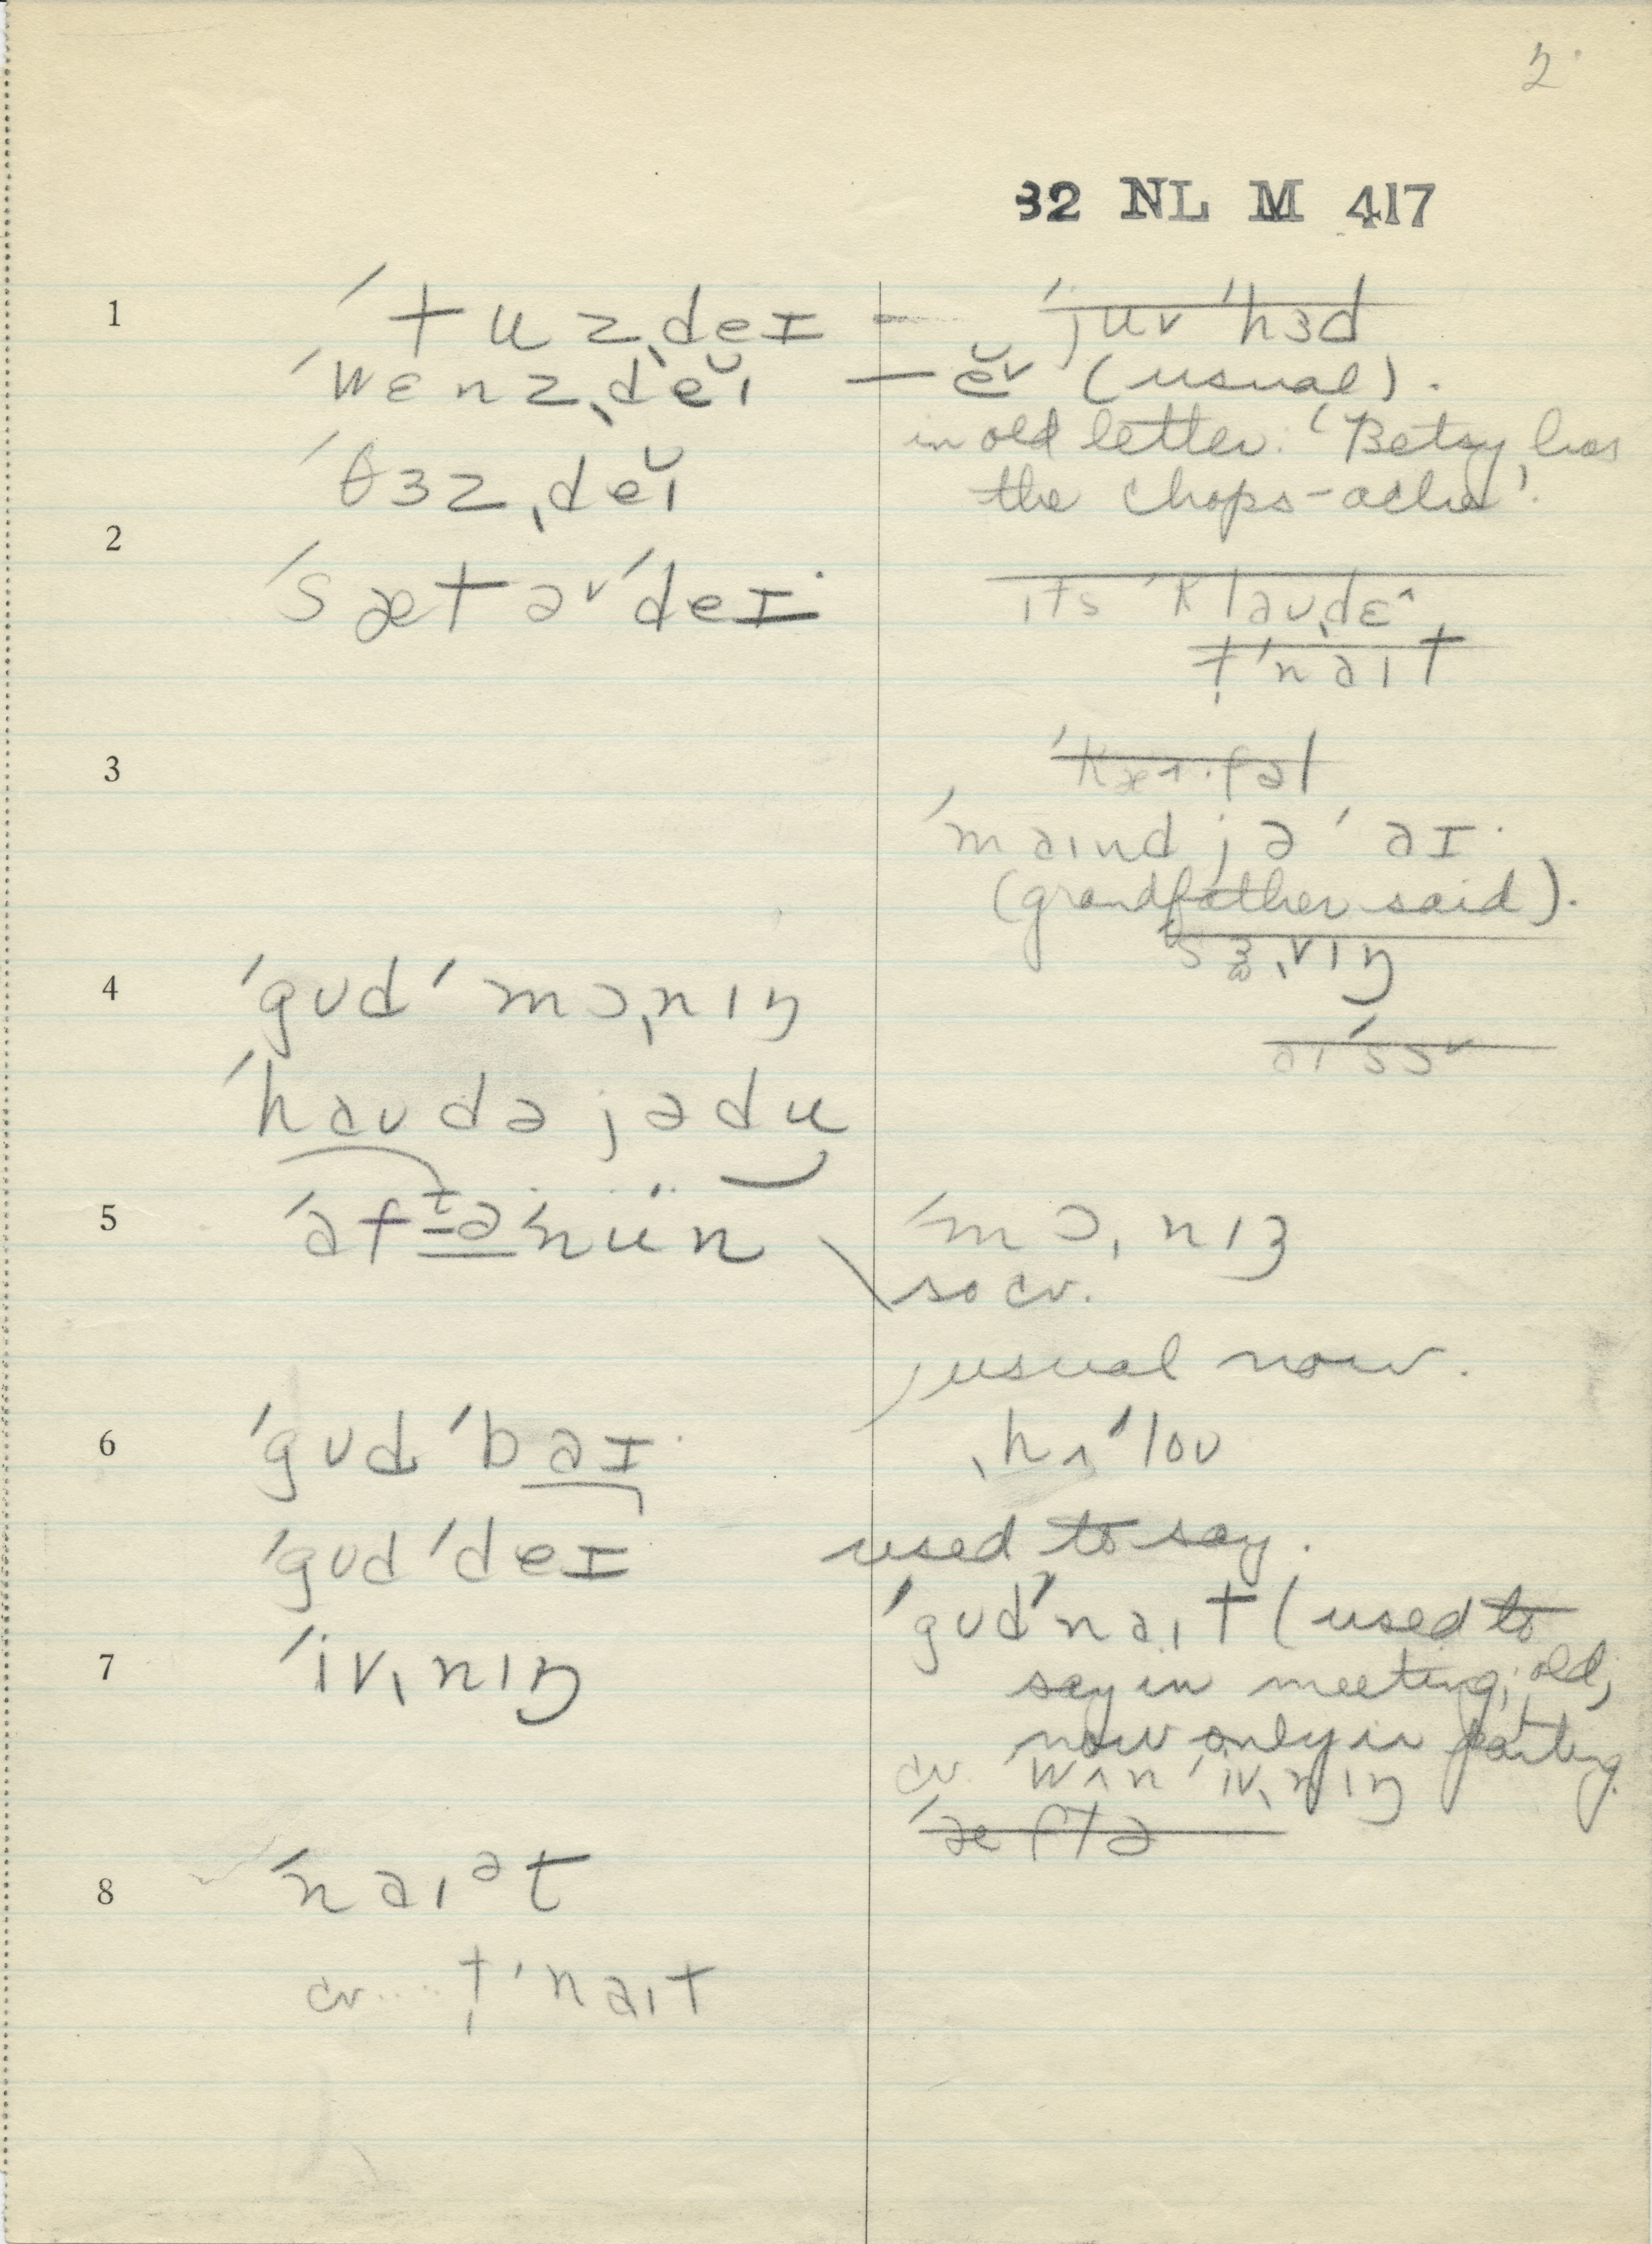 2
32 NL M 417
1
ˈtuzˌdeɪ –
ˈwɛnzˌdĕɪ
ˈθɜzˌdĕɪ
2
ˈsætəvˈdeɪ
3
4
ˈgʊdˈmɔˌnɪŋ
ˈhaʊdəjədu
5
ˈaftəˈnün
6
ˈgʊdˈbaɪ
ˈgʊdˈdeɪ
7
ˈivˌnɪŋ
8
ˈnaɪᵊt
cv. ... t̩ˈnaɪt
ˈjuvˈhɜd
— ĕv (usual).
in old letter: 'Betsy has
the chops-ache'.
ɪts ˈklaʊˌdɛ^
t̩ˈnaɪt
ˈmaɪnd jəˈaɪ
(grandfather said).
ˈsɜˌvɪŋ
ˈmɔˌnɪŋ
so cv.
usual now.
ˌhʌˈloʊ
used to say.
ˈgʊdˈnaɪt (used to
say in meeting; old;
now only in parting.
cv. wʌnˈivˌnɪŋ
ˈæftə